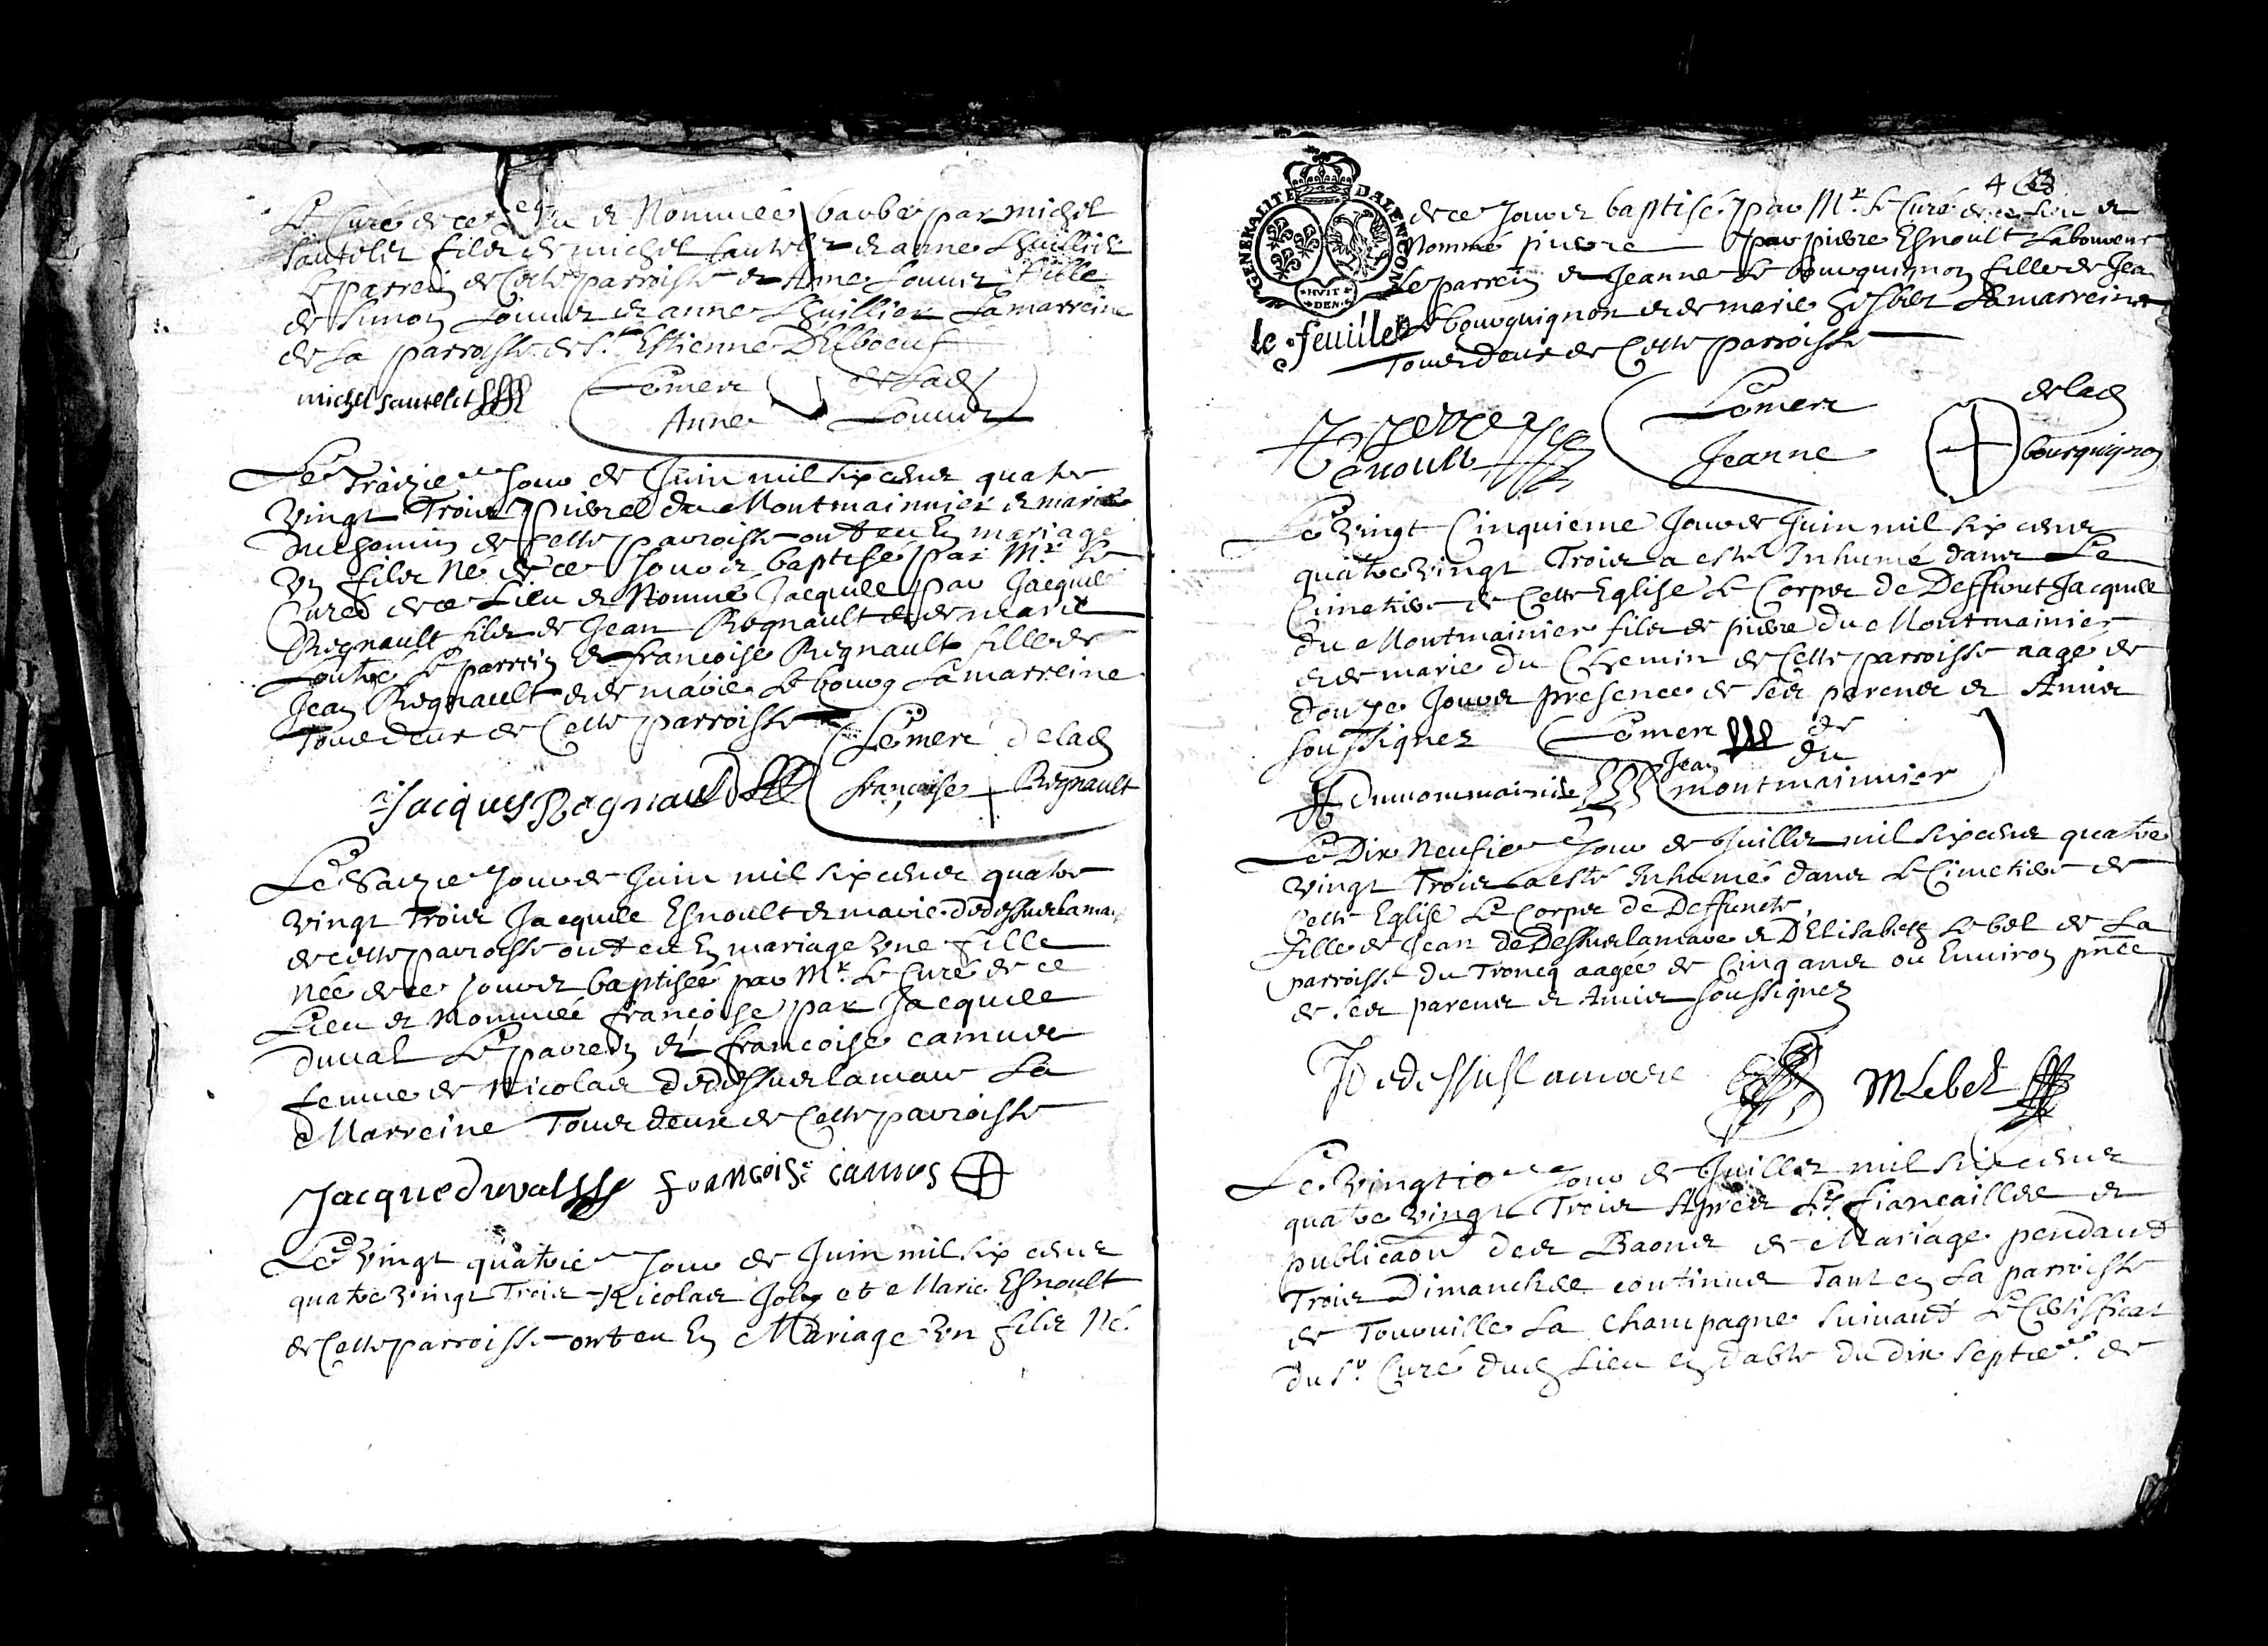 Le Curé de ce Lieu et Nommée barbe par michel
Sautelet filz de michel Sautelet et anne Lhuillier
Le parrein de Cette parroisse et Anne Louvet fille
de Simon Louvet et anne Lhuillier La marreine
de La parroisse de St. Estienne DElboeuf
michel Sautelet Le merc de Lad
Anne Louvet
Le Traizie Jour de Juin mil six cens quatre
vingt Trois Pierre du Montmainnier et marie
duchemin de Cette parroisse ont eu En mariage
Un filz Né de ce Jour et baptisé par Mr. Le
Curé de ce Lieu et Nommé Jacques par Jacques
Regnault filz de Jean Regnault et de marie
Le parrein et francoise Regnault fille de
Jean Regnault et de marie Le bourg La marreine
Tous deux de Cette parroisse
Le merc de Lad
Jacques Regnault francoise Regnault
Le Saizie Jour de Juin mil six cens quatre
vingt Trois Jacques Esnoult et marie dedessuslamare
de cette parroisse ont eu En mariage Une fille
née de ce Jour et baptisée par Mr. Le Curé de ce
Lieu et Nommée francoise par Jacques
duval Le parrein et francoise camus
femme de Nicolas dedessuslamare La
Marreine Tous deux de Cette parroisse
Jacque duval francoise camus
Le vingt quatrie Jour de Juin mil six cens
quatre vingt Trois Nicolas Joly et Marie Esnoult
de Cette parroisse ont eu En Mariage Un filz Né
GENERALITE DALENCON
HVIT DEN
le feuillet
4
de ce Jour et baptisé par Mr. Le Curé de ce Lieu et
Nommé pierre par pierre Esnoult Laboureur
Le parrein et Jeanne Le bourguignon fille de Jean
Le bourguignon et de marie La marreine
Tous deux de Cette parroisse
Le merc de Lad
pierre Enoult Jeanne bourguignon
Le vingt Cinquieme Jour de Juin mil six cens
quatre vingt Trois a esté Inhumé dans Le
Cimetiere de Cette Eglise Le Corps de Deffunt Jacques
du Montmainier filz de pierre du Montmainier
et de marie du Chemin de Cette parroisse aagé de
douze Jours presence de ses parens et Amis
soussignez Le merc de
Jean du
dumommainie montmainnier
Le Dix Neufie Jour de Juillet mil six cens quatre
vingt Trois a esté Inhumé dans Le Cimetiere de
Cette Eglise Le Corps de Deffuncte
fille de Jean de Dessuslamare et DElisabeth Le bel de La
parroisse du Troncq aagée de Cinq ans ou Environ pñce
de ses parens et Amis soussignez
J dedessuslamare M Lebel
Le vingtie Jour de Juillet mil six cens
quatre vingt Trois Apres Les fiancailles et
publicaõn des Baons de Mariage pendant
Trois Dimanches continus Tant en La parroisse
de Tourville La Champagne suivant Le Certifficat
du Sr. Curé dud Lieu en dabte du dix septie. de